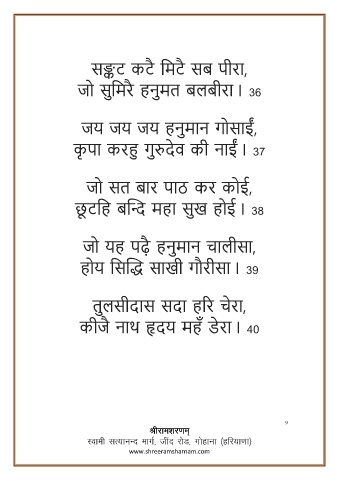 सङ्कट कटै मिटै सब पीरा,
जो सुमिरै हनुमत बलबीरा। 36
जय जय जय हनुमान गोसाईं,
कृपा करहु गुरुदेव की नाईं। 37
जो सत बार पाठ कर कोई,
छूटहि बन्दि महा सुख होई। 38
जो यह पढ़ै हनुमान चालीसा,
होय सिद्धि साखी गौरीसा। 39
तुलसीदास सदा हरि चेरा,
कीजै नाथ हृदय महँ डेरा। 40
9
श्रीरामशरणम्
स्वामी सत्यानन्द मार्ग, जींद रोड, गोहाना (हरियाणा)
www.shreeramsharnam.com